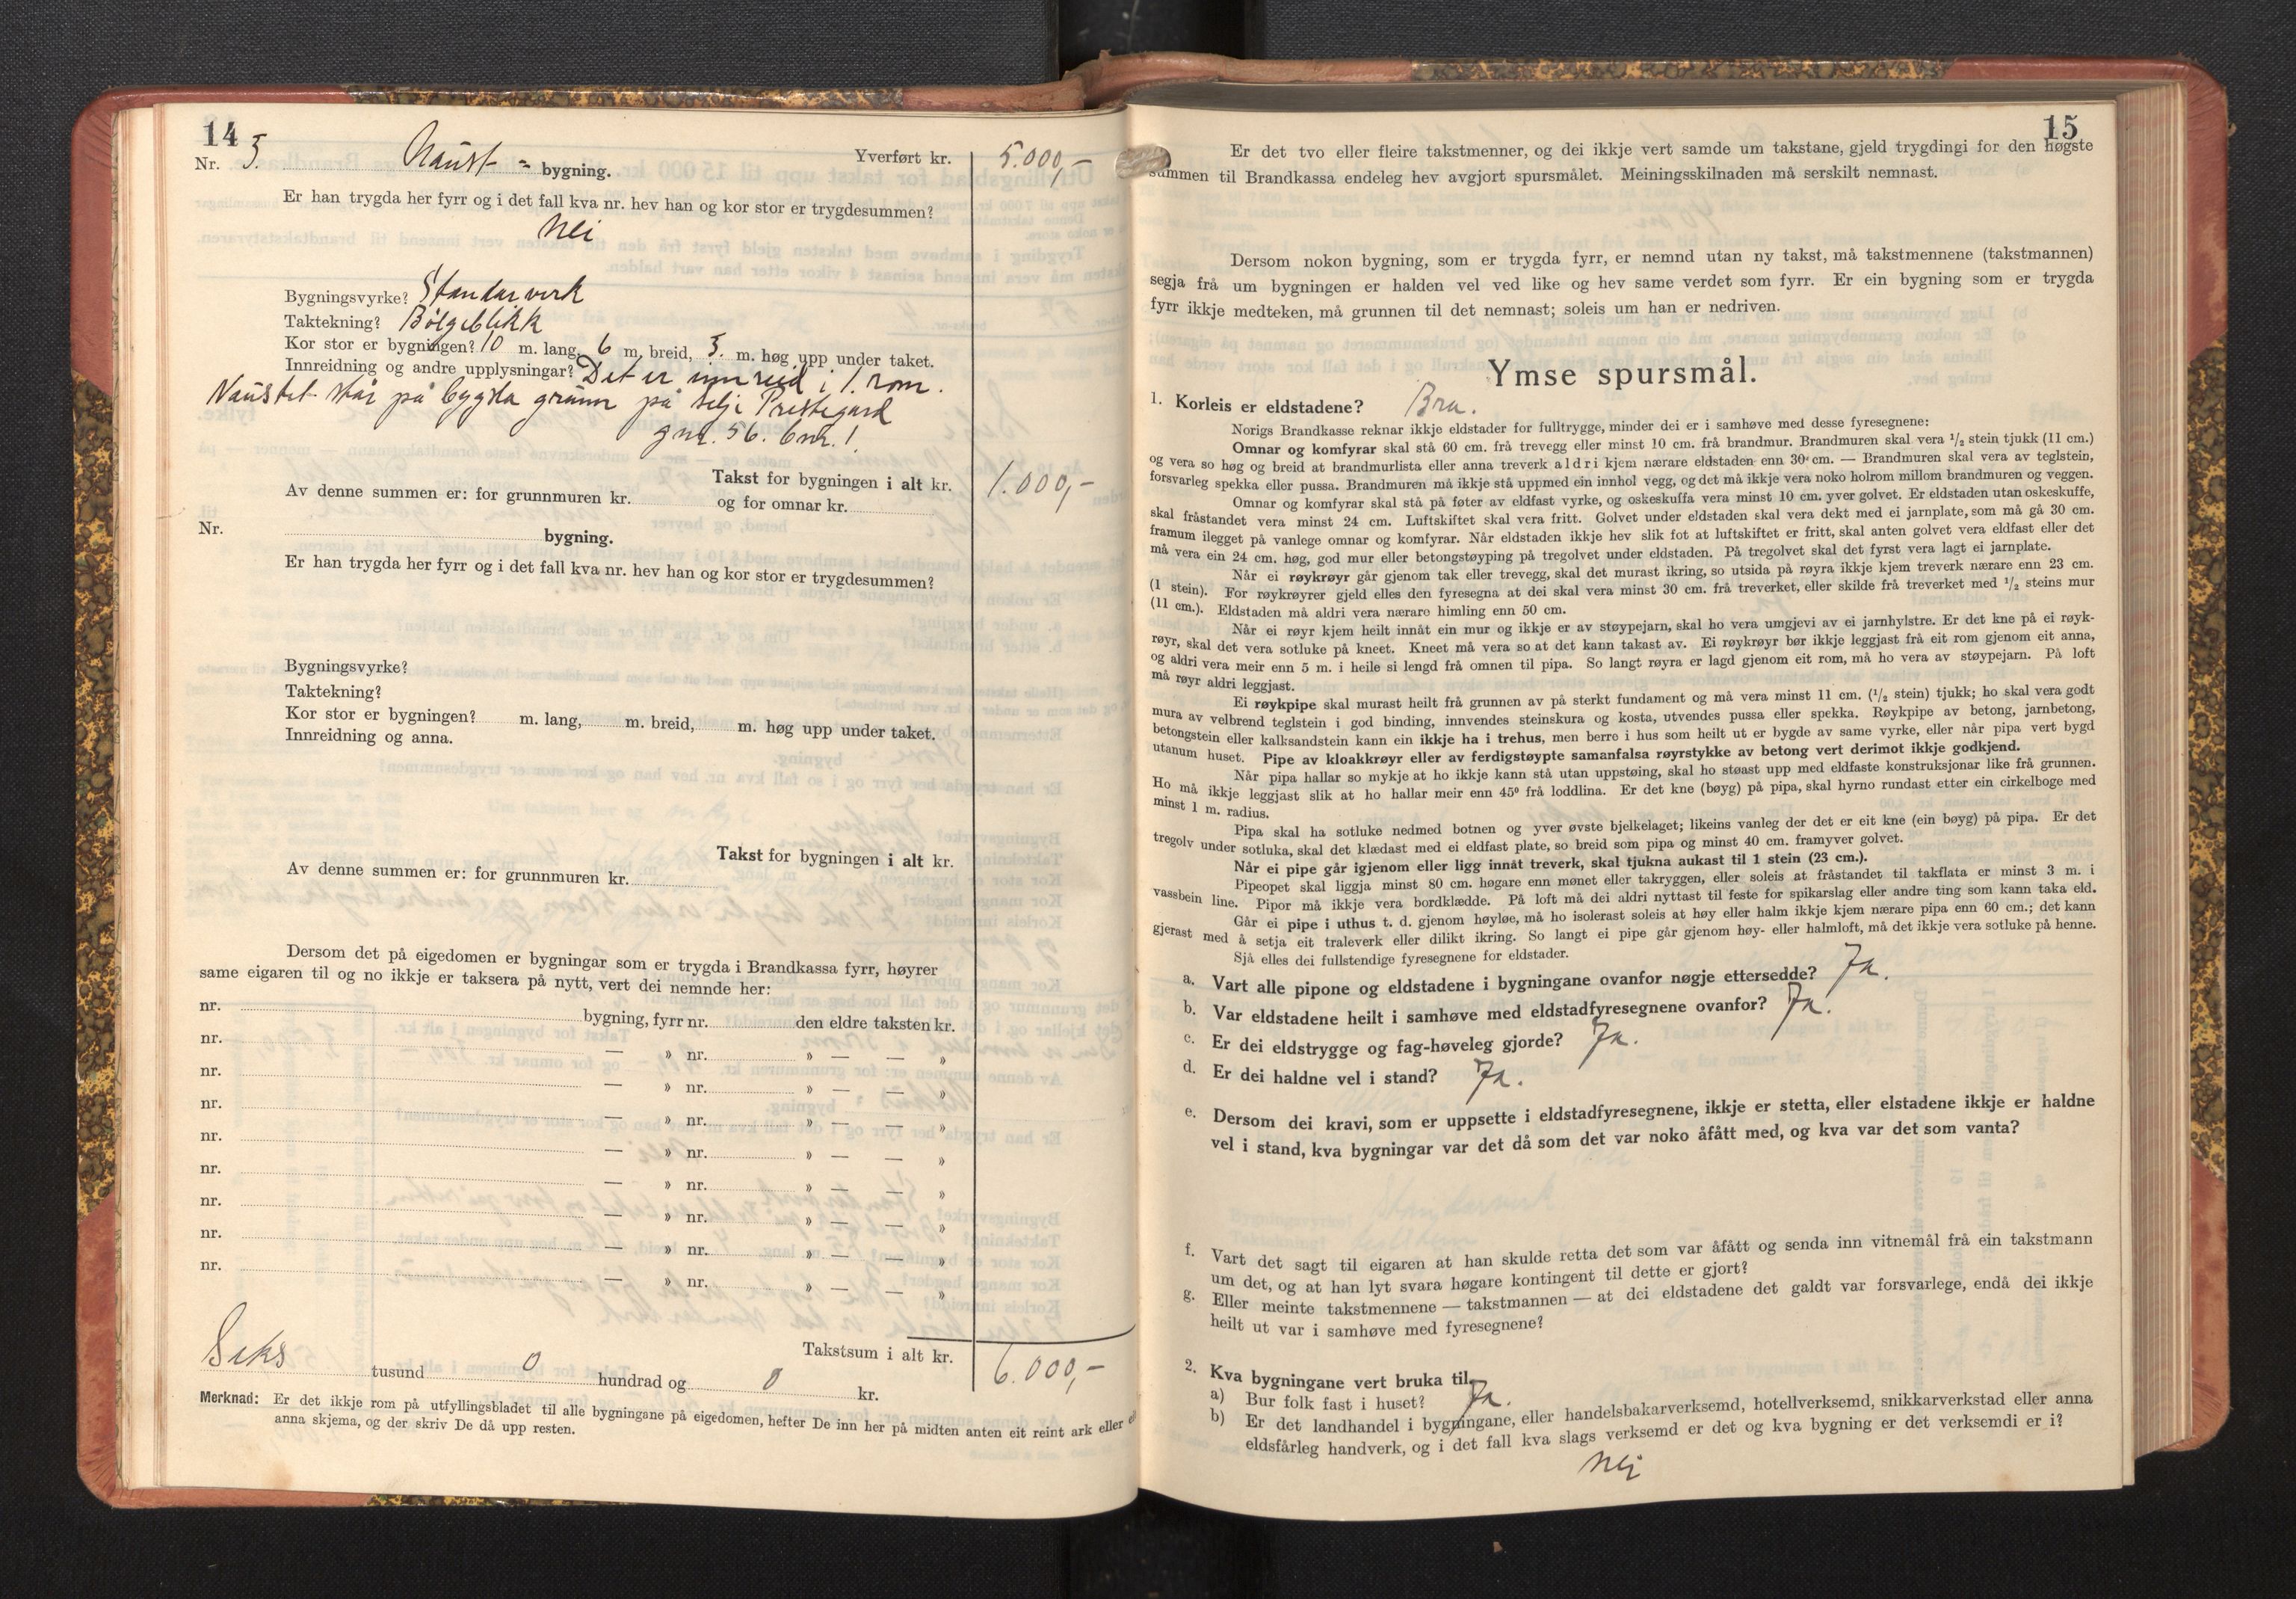 14
Nr. 3. Naust- bygning. Yverført kr. 5.000,-
Er han trygda her fyrr og i det fall kva nr. hev han og kor stor er trygdesummen?
Nei
Bygningsvyrke? Standarverk
Taktekning? Bølgeblikk
Kor stor er bygningen? 10 m. lang, 6 m. breid, 3. m. høg upp under taket.
Innreidning og andre upplysningar? Det er innreid i 1. rom.
Naustet står på bygsla grunn på Selje Prestegard
gnr. 56. bnr. 1
Takst for bygningen i alt kr. 1.000,-
Av denne summen er: for grunnmuren kr. og for omnar kr.
Nr. bygning.
Er han trygda her fyrr og i det fall kva nr. hev han og kor stor er trygdesummen?
Bygningsvyrke?
Taktekning?
Kor stor er bygningen? m. lang, m. breid, m. høg upp under taket.
Innreidning og anna.
Takst for bygningen i alt kr.
Av denne summen er: for grunnmuren kr.
Dersom det på eigedomen er bygningar som er trygda i Brandkassa fyrr, høyrer
same eigaren til og no ikkje er taksera på nytt, vert dei nemnde her:
nr. bygning, fyrr nr. den eldre taksten kr.
nr. — » nr. » — — »
nr. — » nr. » — — »
nr. — » nr. » — — »
nr. — » nr. » — — »
nr. — » nr. » — — »
nr. — » nr. » — — »
nr. — » nr. » — — »
nr. — » nr. » — — »
Takstsum i alt kr. 6.000,-
Seks tusund 0 hundrad og 0 kr.
Merknad: Er det ikkje rom på utfyllingsbladet til alle bygningane på eigedomen, hefter De inn her på midten anten eit reint ark eller eit
anna skjema, og der skriv De då upp resten.
15
Er det tvo eller fleire takstmenner, og dei ikkje vert samde um takstane, gjeld trygdingi for den høgste
summen til Brandkassa endeleg hev avgjort spursmålet. Meiningsskilnaden må serskilt nemnast.
Dersom nokon bygning, som er trygda fyrr, er nemnd utan ny takst, må takstmennene (takstmannen)
segja frå um bygningen er halden vel ved like og hev same verdet som fyrr. Er ein bygning som er trygda
fyrr ikkje medteken, må grunnen til det nemnast; soleis um han er nedriven.
Ymse spursmål.
1. Korleis er eldstadene? Bra.
Norigs Brandkasse reknar ikkje eldstader for fulltrygge, minder dei er i samhøve med desse fyresegnene:
Omnar og komfyrar skal stå 60 cm. frå trevegg eller minst 10 cm. frå brandmur. Brandmuren skal vera 1/2 stein tjukk (11 cm.)
og vera so høg og breid at brandmurlista eller anna treverk aldri kjem nærare eldstaden enn 30 cm. — Brandmuren skal vera av teglstein,
forsvarleg spekka eller pussa. Brandmuren må ikkje stå uppmed ein innhol vegg, og det må ikkje vera noko holrom millom brandmuren og veggen.
Omnar og komfyrar skal stå på føter av eldfast vyrke, og oskeskuffa vera minst 10 cm. yver golvet. Er eldstaden utan oskeskuffe,
skal fråstandet vera minst 24 cm. Luftskiftet skal vera fritt. Golvet under eldstaden skal vera dekt med ei jarnplate, som må gå 30 cm.
framum ilegget på vanlege omnar og komfyrar. Når eldstaden ikkje hev slik fot at luftskiftet er fritt, skal anten golvet vera eldfast eller det
må vera ein 24 cm. høg, god mur eller betongstøyping på tregolvet under eldstaden. På tregolvet skal det fyrst vera lagt ei jarnplate.
Når ei røykrøyr går gjenom tak eller trevegg, skal det murast ikring, so utsida på røyra ikkje kjem treverk nærare enn 23 cm.
(1 stein). For røykrøyrer gjeld elles den fyresegna at dei skal vera minst 30 cm. frå treverket, eller skilde frå treverket med 1/2 steins mur
(11 cm.). Eldstaden må aldri vera nærare himling enn 50 cm.
Når ei røyr kjem heilt innåt ein mur og ikkje er av støypejarn, skal ho vera umgjevi av ei jarnhylstre. Er det kne på ei røyk-
røyr, skal det vera sotluke på kneet. Kneet må vera so at det kann takast av. Ei røykrøyr bør ikkje leggjast frå eit rom gjenom eit anna,
og aldri vera meir enn 5 m. i heile si lengd frå omnen til pipa. So langt røyra er lagd gjenom eit rom, må ho vera av støypejarn. På loft
må røyr aldri leggjast.
Ei røykpipe skal murast heilt frå grunnen av på sterkt fundament og må vera minst 11 cm. (1/2 stein) tjukk; ho skal vera godt
mura av velbrend teglstein i god binding, innvendes steinskura og kosta, utvendes pussa eller spekka. Røykpipe av betong, jarnbetong,
betongstein eller kalksandstein kann ein ikkje ha i trehus, men berre i hus som heilt ut er bygde av same vyrke, eller når pipa vert bygd
utanum huset. Pipe av kloakkrøyr eller av ferdigstøypte samanfalsa røyrstykke av betong vert derimot ikkje godkjend.
Når pipa hallar so mykje at ho ikkje kann stå utan uppstøing, skal ho støast upp med eldfaste konstruksjonar like frå grunnen.
Ho må ikkje leggjast slik at ho hallar meir enn 45° frå loddlina. Er det kne (bøyg) på pipa, skal hyrno rundast etter ein cirkelboge med
minst 1 m. radius.
Pipa skal ha sotluke nedmed botnen og yver øvste bjelkelaget; likeins vanleg der det er eit kne (ein bøyg) på pipa. Er det
tregolv under sotluka, skal det klædast med ei eldfast plate, so breid som pipa og minst 40 cm. framyver golvet.
Når ei pipe går igjenom eller ligg innåt treverk, skal tjukna aukast til 1 stein (23 cm.).
Pipeopet skal liggja minst 80 cm. høgare enn mønet eller takryggen, eller soleis at fråstandet til takflata er minst 3 m. i
vassbein line. Pipor må ikkje vera bordklædde. På loft må dei aldri nyttast til feste for spikarslag eller andre ting som kann taka eld.
Går ei pipe i uthus t. d. gjenom høyløe, må ho isolerast soleis at høy eller halm ikkje kjem nærare pipa enn 60 cm.; det kann
gjerast med å setja eit traleverk eller dilikt ikring. So langt ei pipe går gjenom høy- eller halmloft, må det ikkje vera sotluke på henne.
Sjå elles dei fullstendige fyresegnene for eldstader.
a. Vart alle pipone og eldstadene i bygningane ovanfor nøgje ettersedde? Ja.
b. Var eldstadene heilt i samhøve med eldstadfyresegnene ovanfor? Ja.
c. Er dei eldstrygge og fag-høveleg gjorde? Ja.
d. Er dei haldne vel i stand? Ja.
e. Dersom dei kravi, som er uppsette i eldstadfyresegnene, ikkje er stetta, eller elstadene ikkje er haldne
vel i stand, kva bygningar var det då som det var noko åfått med, og kva var det som vanta?
f. Vart det sagt til eigaren at han skulde retta det som var åfått og senda inn vitnemål frå ein takstmann
um det, og at han lyt svara høgare kontingent til dette er gjort?
g. Eller meinte takstmennene — takstmannen — at dei eldstadene det galdt var forsvarlege, endå dei ikkje
heilt ut var i samhøve med fyresegnene?
2. Kva bygningane vert bruka til.
a) Bur folk fast i huset? Ja.
b) Er det landhandel i bygningane, eller handelsbakarverksemd, hotellverksemd, snikkarverkstad eller anna
eldsfårleg handverk, og i det fall kva slags verksemd er det og kva bygning er det verksemdi er i?
Nei